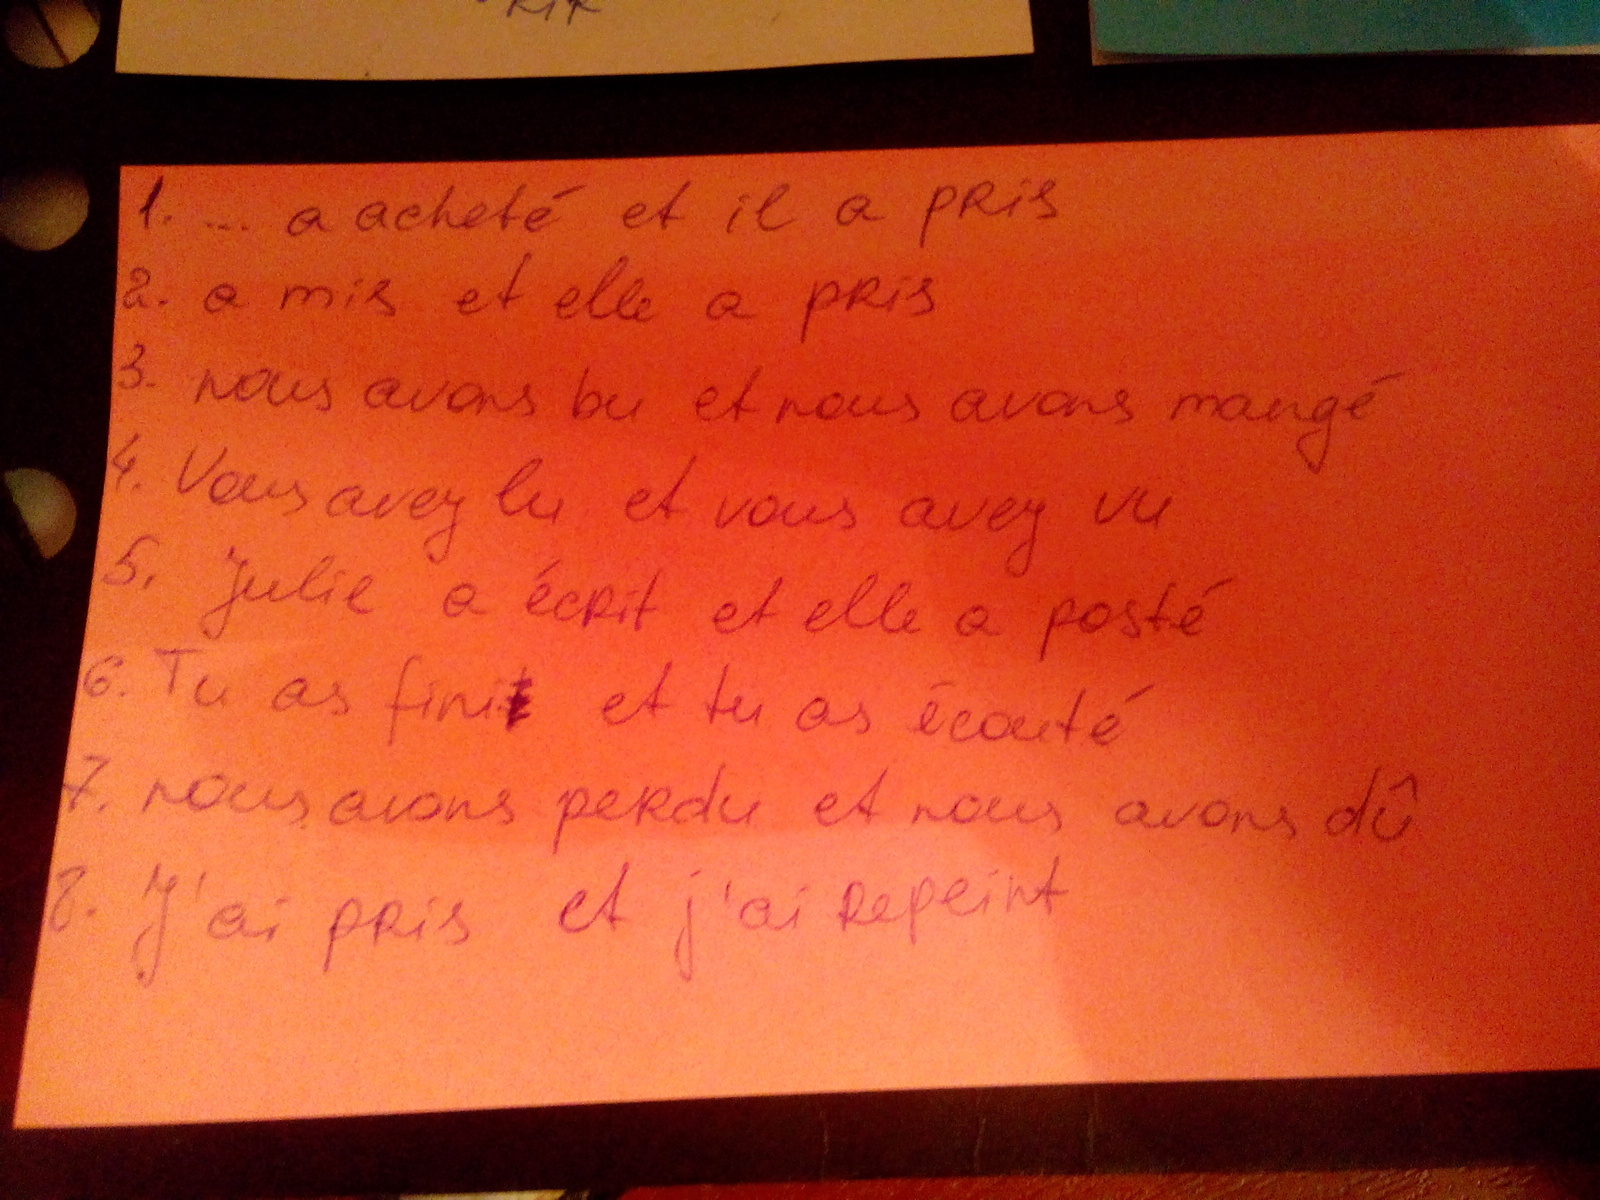 1. ... a acheté et il a pris
2. a mis et elle a pris
3. nous avons bu et nous avons mangé
4. Vous avez lu et vous avez vu
5. Julie a écrit et elle a posté
6. Tu as fini et tu as écouté
7. nous avons perdu et nous avons dû
8. J'ai pris et j'ai repeint